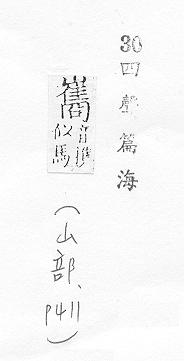 30四聲篇海
音進
似馬
(山部、P411)